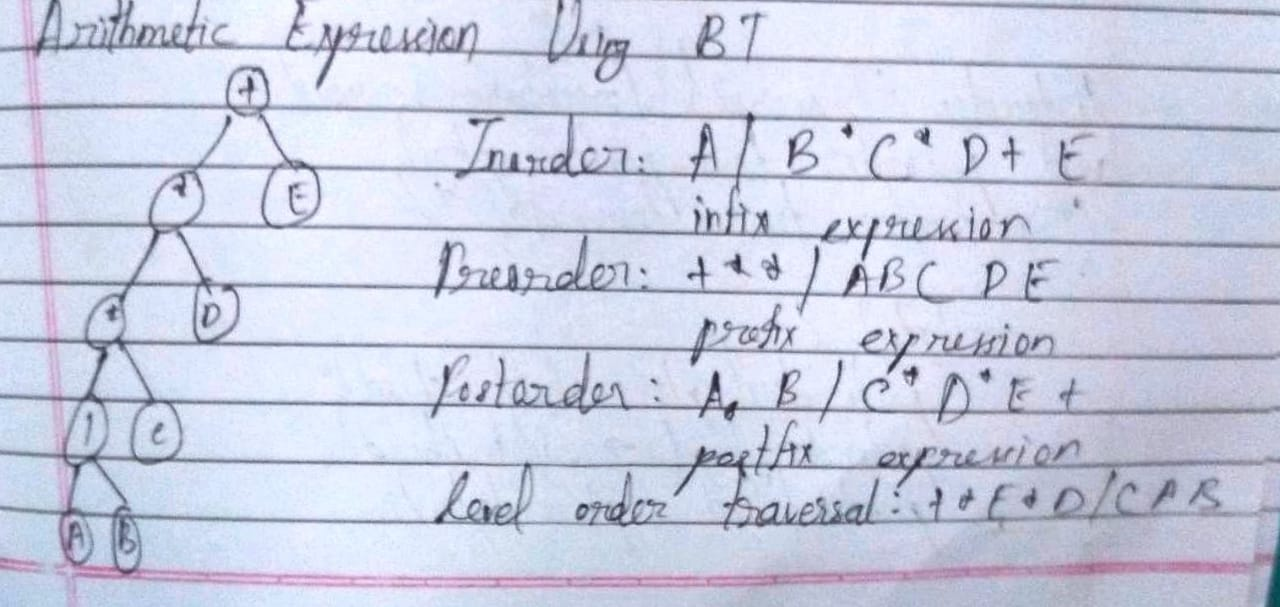 Arithmetic Expression Using BT
+
* E
* D
/ C
A B
Inorder: A / B * C * D + E
infix expression
Preorder: + * * / A B C D E
prefix expression
Postorder: A B / C * D * E +
postfix expression
Level order traversal: + * E * D / C A B